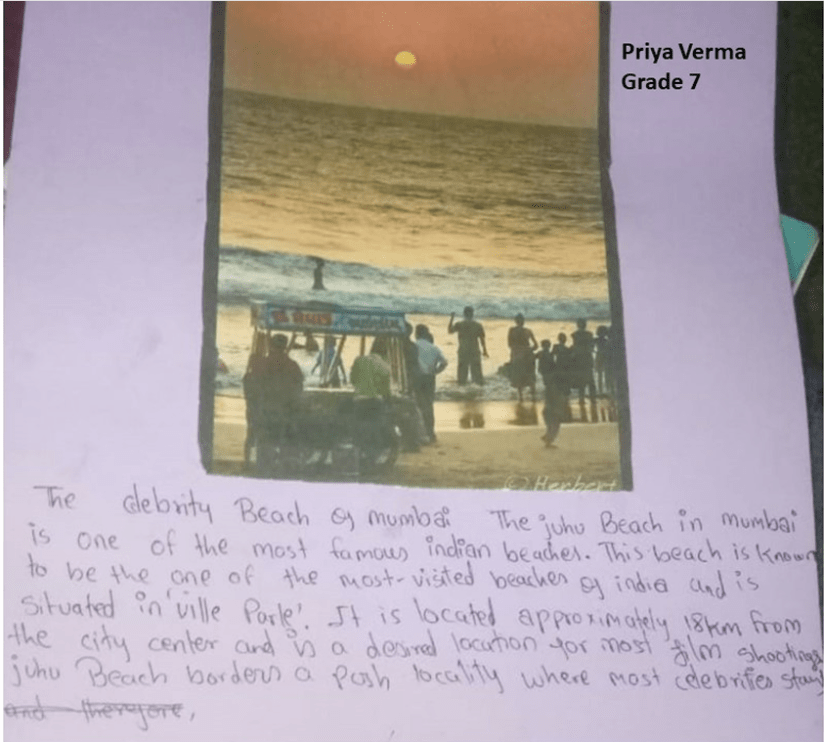 Priya Verma
Grade 7
© Herbert
The clebrity Beach of mumbai The juhu Beach in mumbai
is one of the most famous indian beaches. This beach is known
to be the one of the most-visited beaches of india and is
situated in 'ville Parle'. It is located approximately 18km from
the city center and is a desired location for most film shootings
juhu Beach borders a Posh locality where most celebrities stay
and therefore,